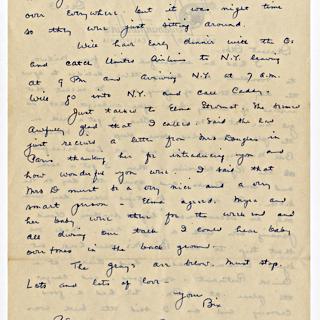 over Everywhere but it was night time
so they were just sitting around.
We'll have Early dinner with the Os
and catch United Airlines to N.Y. leaving
at 9 PM and Arriving N.Y. at 7 A.M.
We'll go into N.Y. and call Caddy.
Just talked to Elma. She seemed
Awfully glad that I called. Said she had
just received a letter from Mrs Douglas in
Paris thanking her for introducing you and
how wonderful you were. I said that
Mrs D must be a very nice and a very
smart person - Elma agreed. Myra and
her baby were there for the week end and
all during our talk I could hear baby
overtones in the back ground.
The guys are below. Must stop.
Lots and lots of love -
your
Bix